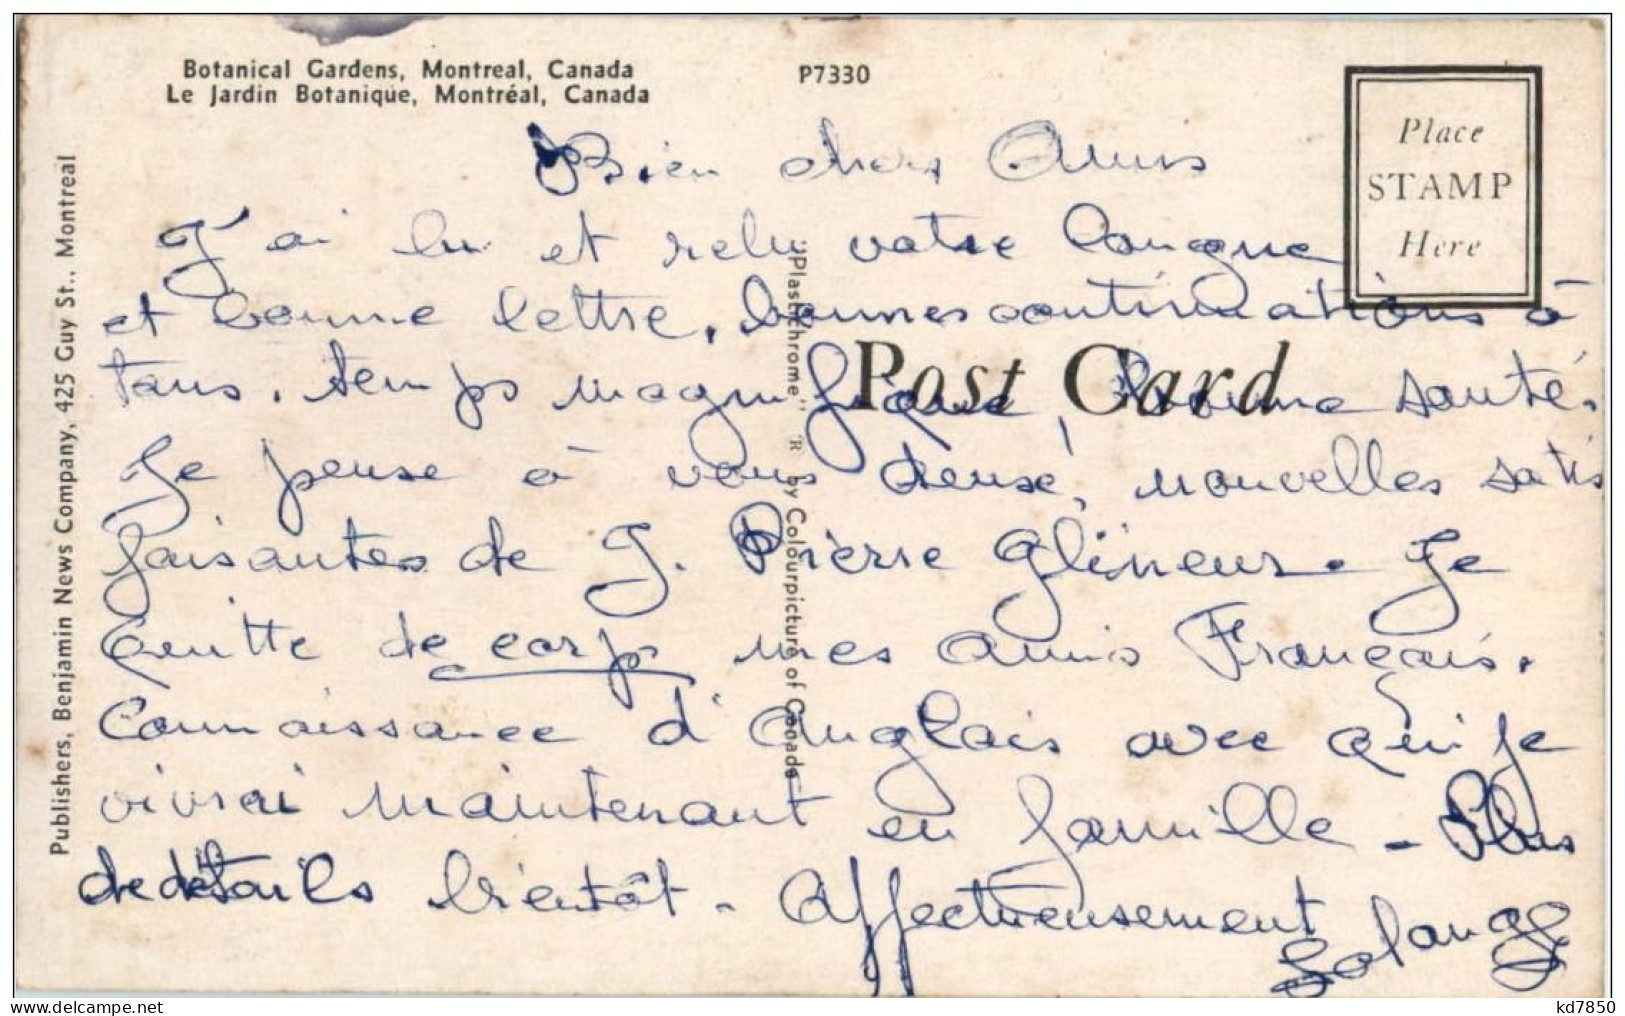 Botanical Gardens, Montreal, Canada
Le Jardin Botanique, Montréal, Canada
P7330
Place
STAMP
Here
Post Card
Publishers, Benjamin News Company, 425 Guy St., Montreal
"Plastichrome" R by Colourpicture of Canada
Bien chers Amis
J'ai lu et relu votre longue
et bonne lettre, bonnes continuations à
tous. temps magnifique, bonne santé.
Je pense à vous deux, nouvelles satis
faisantes de J. Pierre Glineur. Je
quitte de corps mes amis Français.
Connaissance d'Anglais avec qui je
vivrai maintenant en famille - Plus
de détails bientôt - Affectueusement
Solange
kd7850